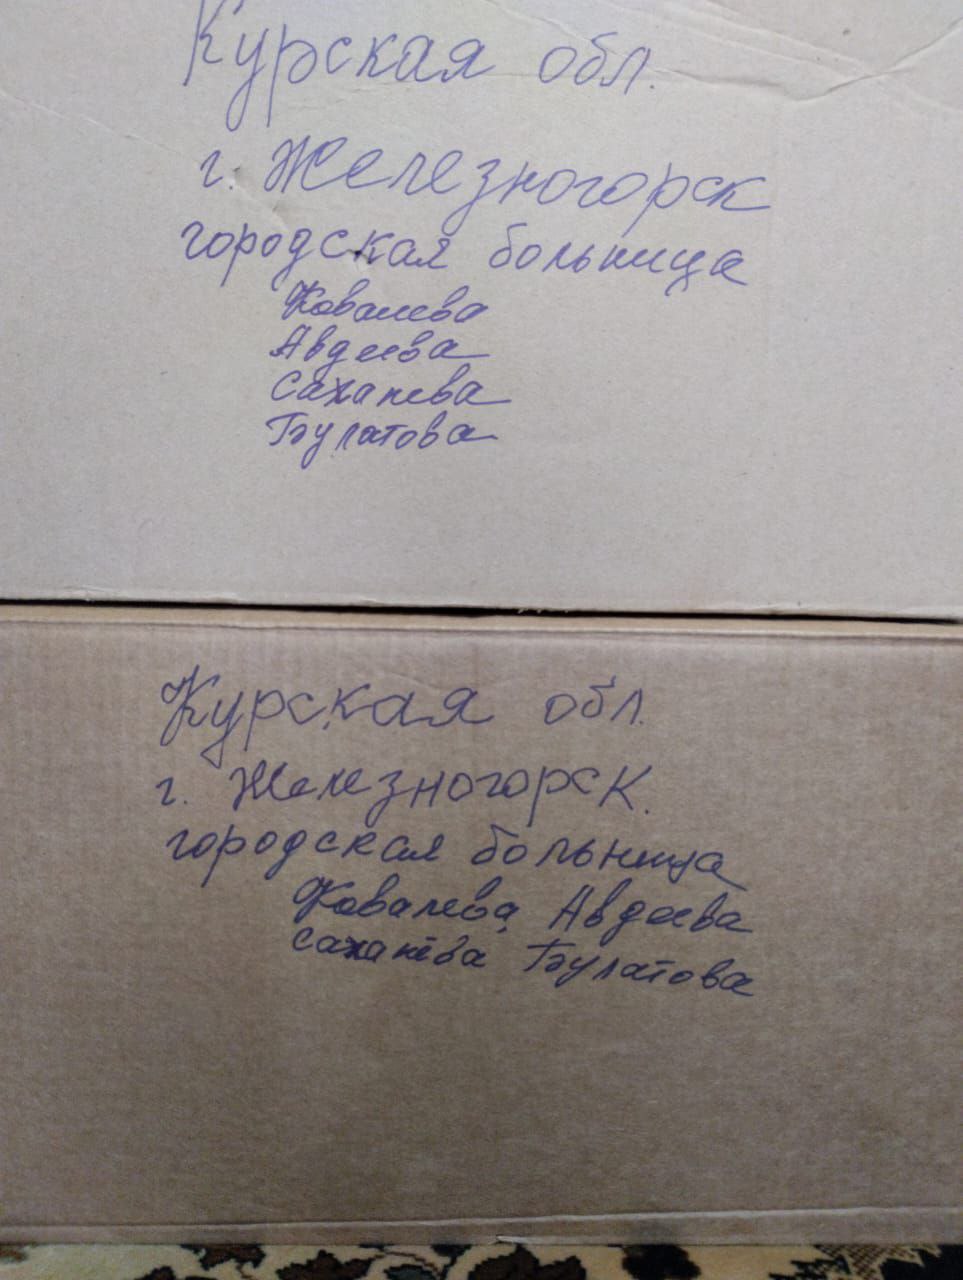 Курская обл.
г. Железногорск
городская больница
Ковалева
Авдеева
Сахапева
Булатова
Курская обл.
г. Железногорск.
городская больница
Ковалева, Авдеева
Сахапева Булатова